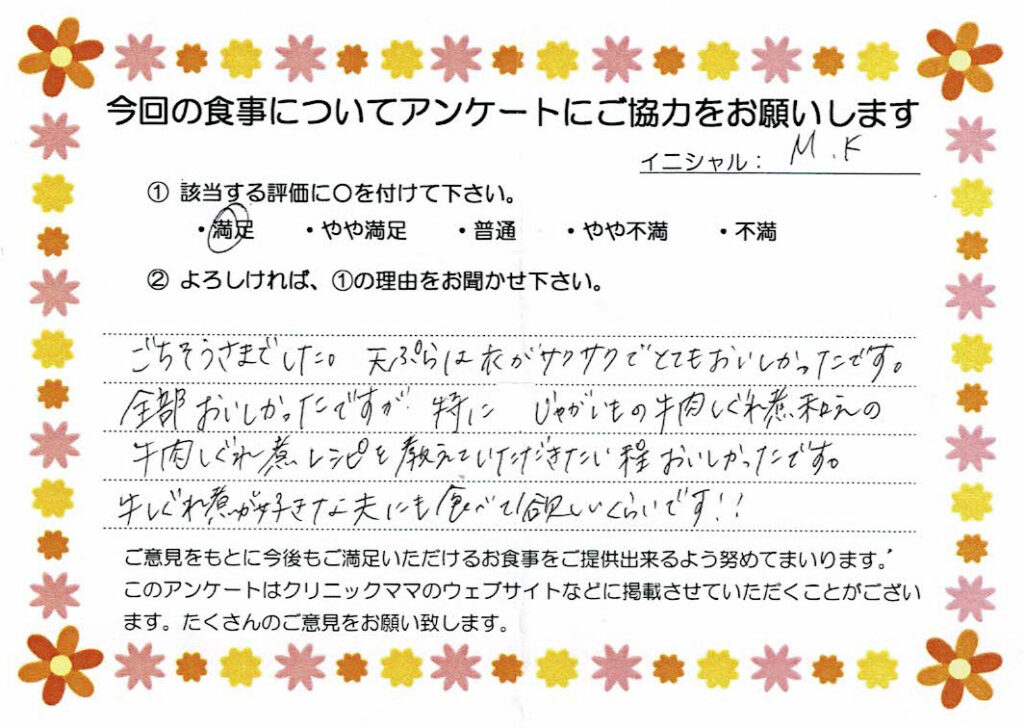 今回の食事についてアンケートにご協力をお願いします
イニシャル： M.K
① 該当する評価に〇を付けて下さい。
・満足 ・やや満足 ・普通 ・やや不満 ・不満
② よろしければ、①の理由をお聞かせ下さい。
ごちそうさまでした。 天ぷらは衣がサクサクでとてもおいしかったです。
全部おいしかったですが 特に じゃがいもの牛肉しぐれ煮和えの
牛肉しぐれ煮レシピを教えていただきたい程おいしかったです。
牛しぐれ煮が好きな夫にも食べて欲しいくらいです!!
ご意見をもとに今後もご満足いただけるお食事をご提供出来るよう努めてまいります。
このアンケートはクリニックママのウェブサイトなどに掲載させていただくことがござい
ます。たくさんのご意見をお願い致します。